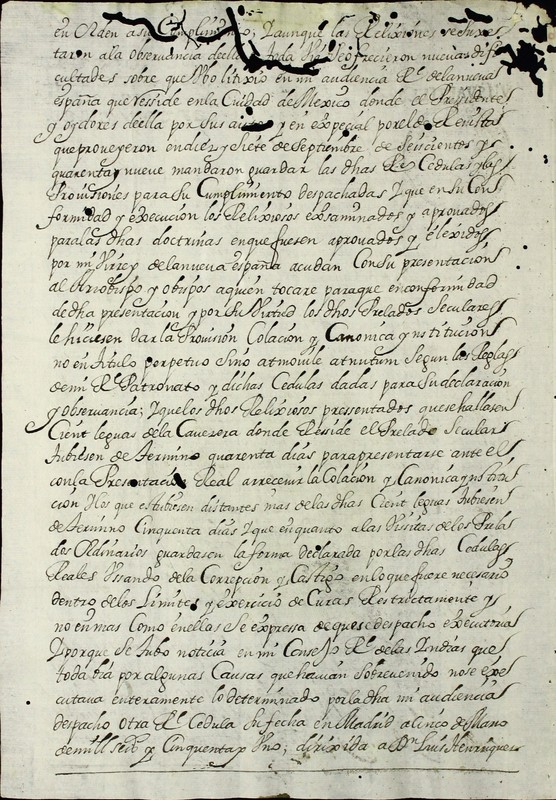 en orden a su Cumplimiento; Y aunque las Relixiones se
taron a la observancia de ello todavia se ofrecieron nuevas difi
cultades sobre que se litixio en mi audiencia Rl. de la nueva
españa que resside en la Ciudad de Mexico donde el Pressidente
y oydores de ella por sus autos y en especial por el de Revista
que proveyeron en diez y siete de septiembre de seiscientos y
quarenta y nueve mandaron guardar las dhas Rs Cedulas y las
Provisiones para su Cumplimento despachadas Y que en su Con
formidad y execucion los Relixiosos exsaminados y aprovados
para las dhas doctrinas en que fuesen aprovados y elexidos
por mi Virrey de la nueva españa acudan Con su presentacion
al Arzobispo y obispos a quien tocare para que en conformidad
de dha presentacion y por su Virtud los dhos Prelados Seculares
le hiciesen dar la Provision Colacion y Canonica ynstitucion
no en titulo perpetuo sino atmovile atnutum segun las Reglas
de mi Rl. Patronato y dichas Cedulas dadas para su declaracion
y observancia; Y que los dhos Relixiosos pressentados que se hallasen
Cient leguas de la Cavezera donde Resside el Prelado Secular
tubiesen de termino quarenta dias para presentarse ante el
con la Presentacion Real a rrecevir la Colacion y Canonica ynstitu
cion Y los que estubiesen distantes mas de las dhas Cient leguas tubiesen
de termino Cinquenta dias Y que en quanto a las Visitas de los Prela
dos Ordinarios guardasen la forma declarada por las dhas Cedulas
Reales Ussando de la Correpcion y Castigo en lo que fuere necesario
dentro de los Limites y exercicio de Curas Restrictamente y
no en mas Como en ellas se expressa de que se despacho executoria
Y porque se tubo noticia en mi Consejo Rl. de las Indias que
toda via por algunas Causas que havian sobrevenido no se exe
cutava enteramente lo determinado por la dha mi audiencia
despacho otra Rl. Cedula su fecha en Madrid a cinco de
de mill seiscs. y Cinquenta y Uno; dirixida a Dn Luis Henrriquez